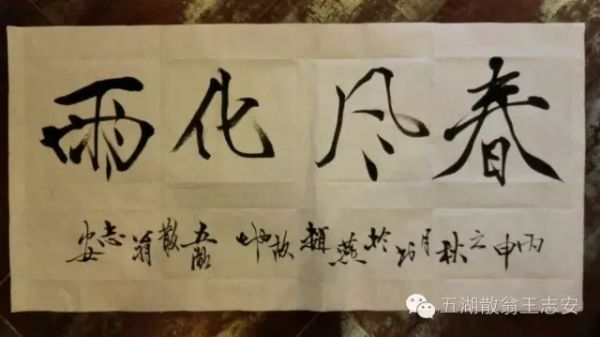 春风化雨
丙申之秋月於燕趙故地五湖散翁志安
五湖散翁王志安